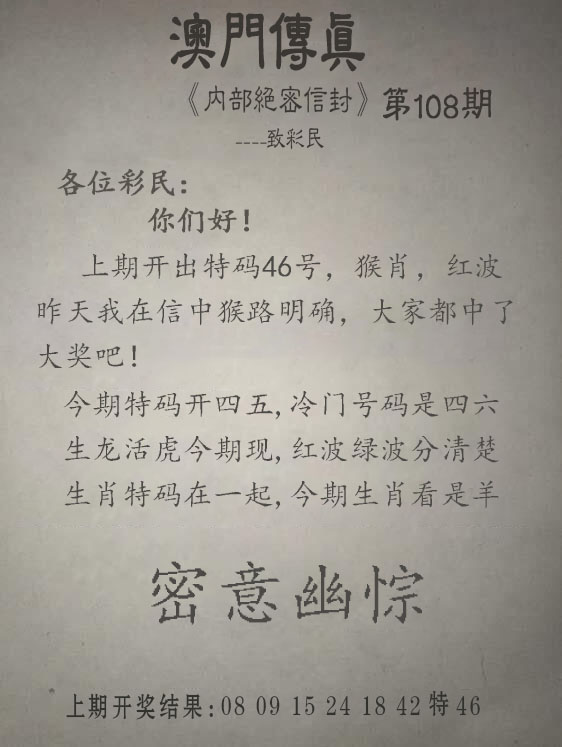 澳門傳眞
《内部絕密信封》第108期
----致彩民
各位彩民:
你们好!
上期开出特码46号，猴肖，红波
昨天我在信中猴路明确，大家都中了
大奖吧!
今期特码开四五,冷门号码是四六
生龙活虎今期现,红波绿波分清楚
生肖特码在一起,今期生肖看是羊
密意幽悰
上期开奖结果:08 09 15 24 18 42特46